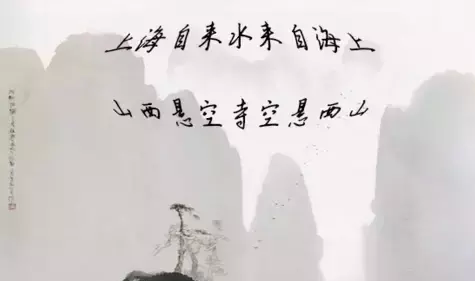 上海自来水来自海上
山西悬空寺空悬西山